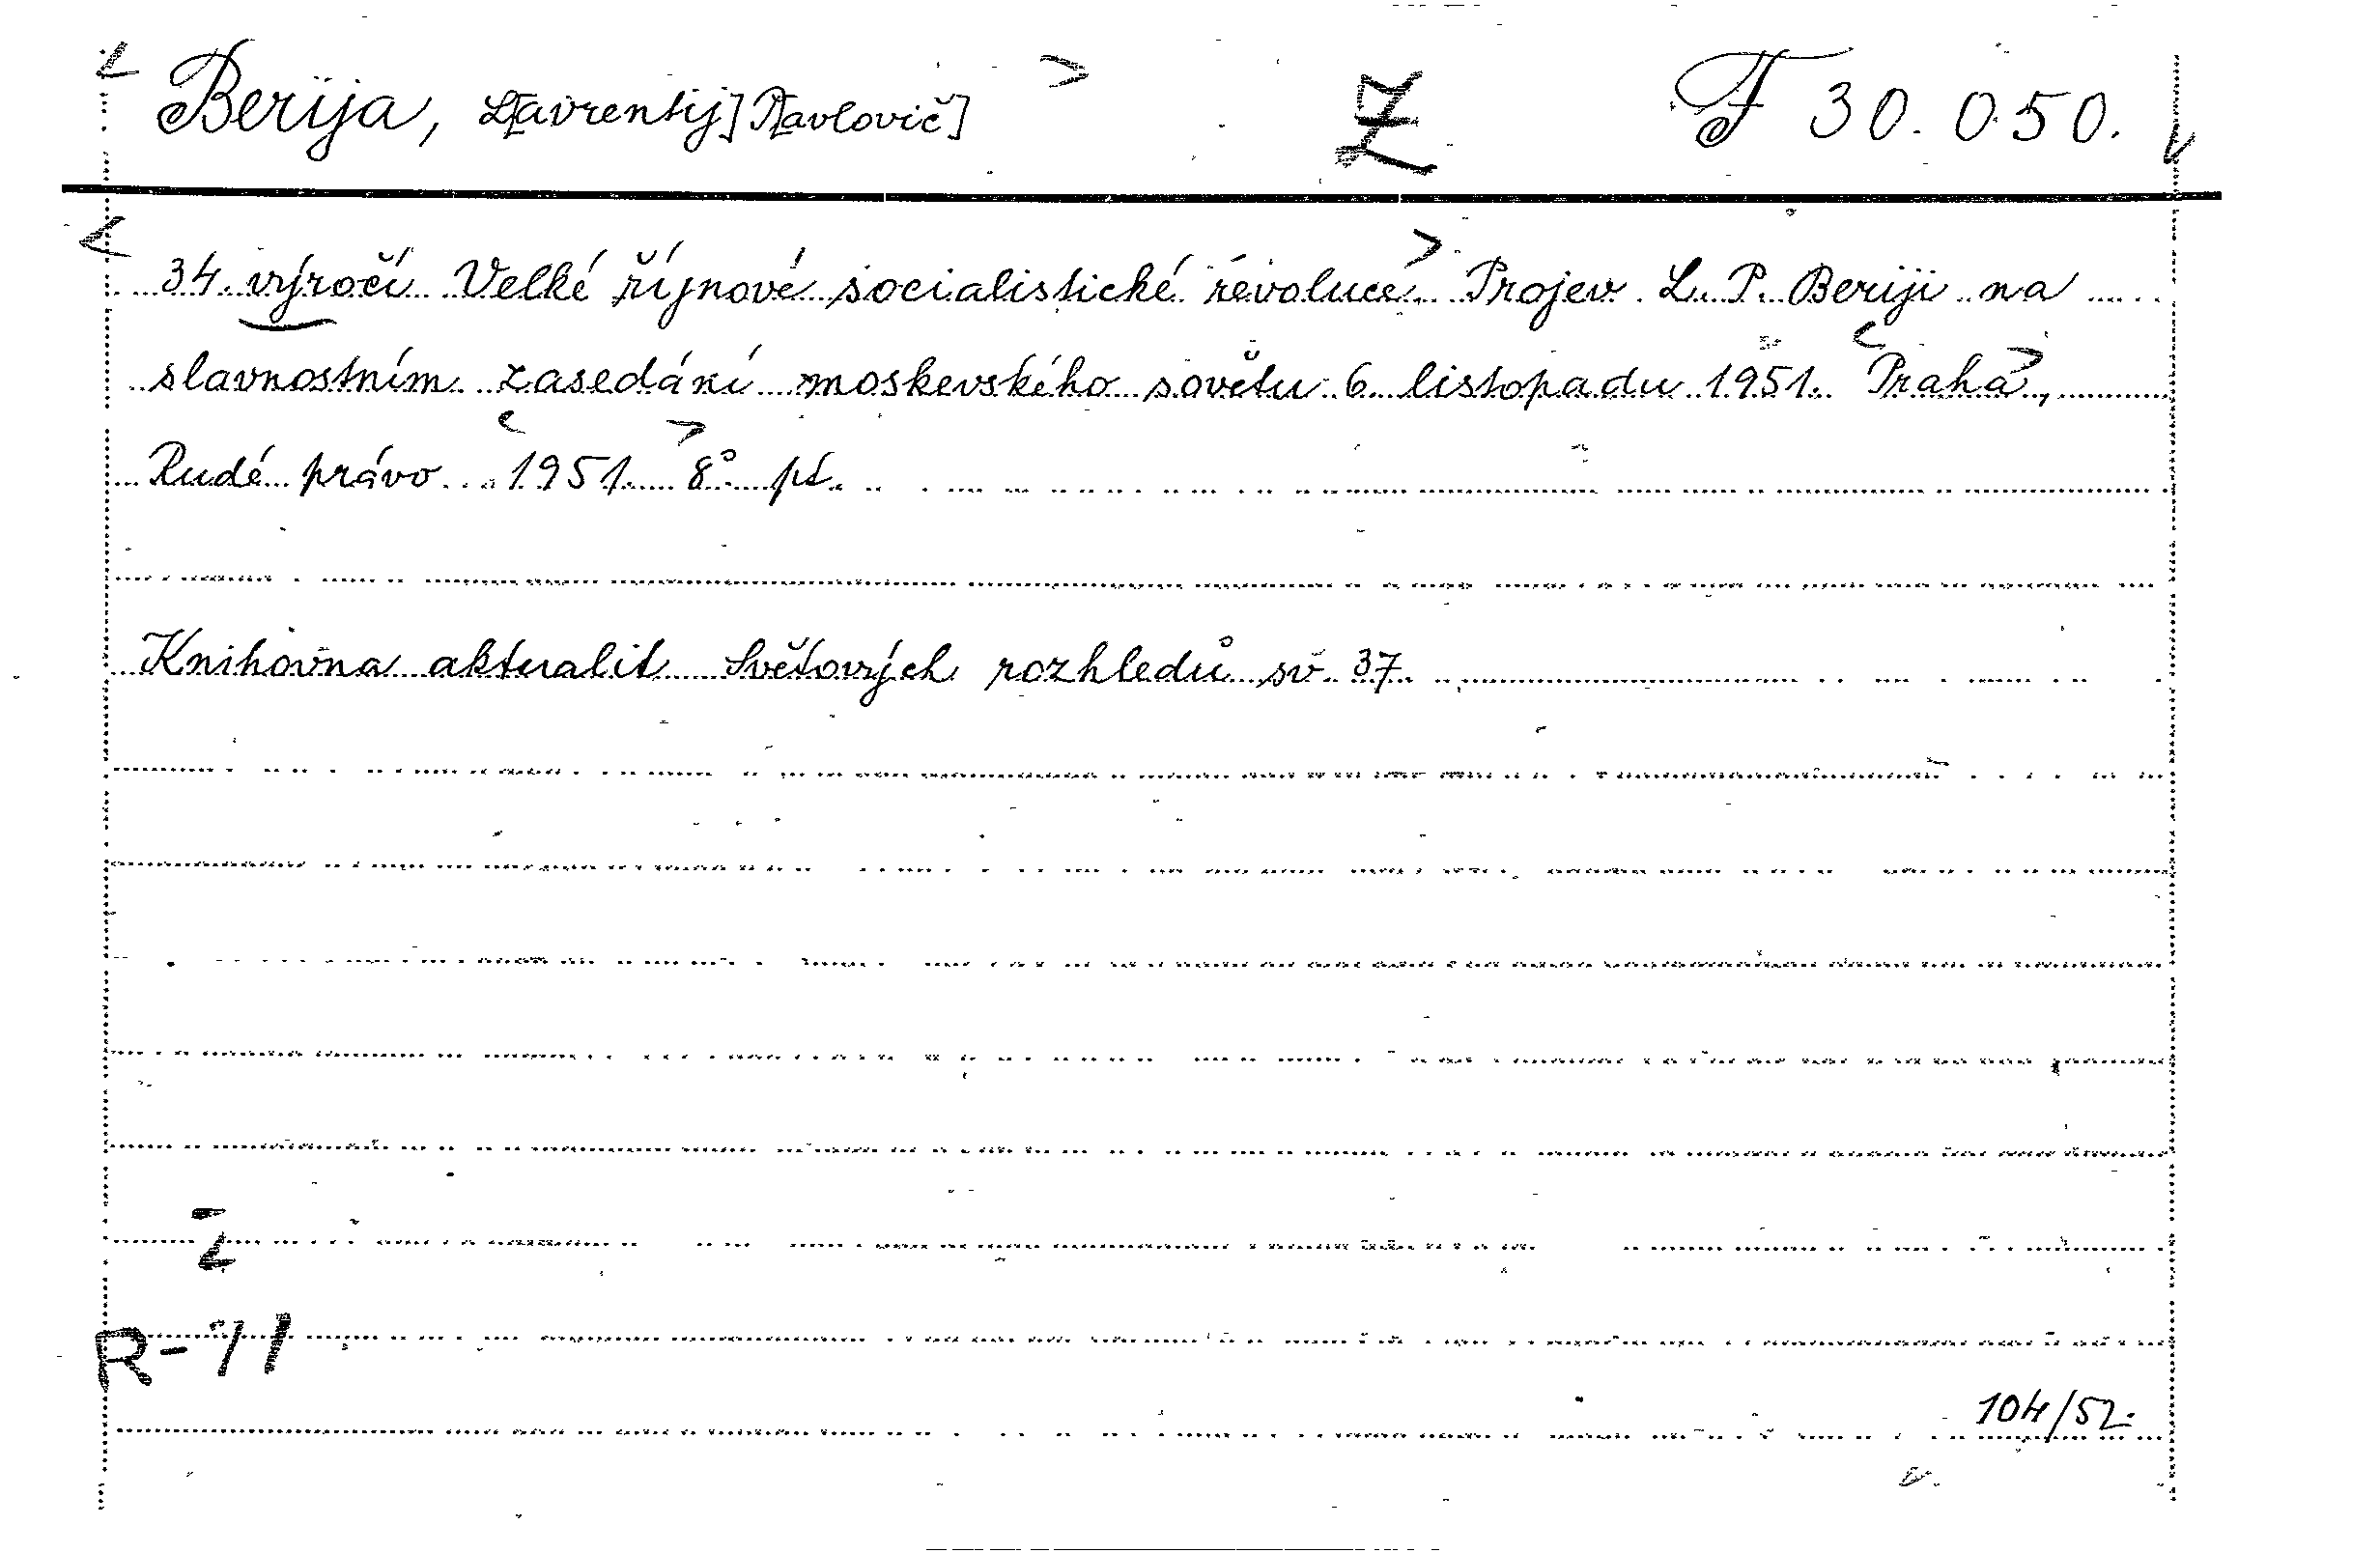 Berija, L[avrentij] P[avlovič] Z F 30.050.
34. výročí Velké říjnové socialistické revoluce. Projev L. P. Beriji na
slavnostním zasedání moskevského sovětu 6. listopadu 1951. Praha,
Rudé právo 1951. 8° pš.
Knihovna aktualit Světových rozhledů sv. 37.
R-11
104/52.